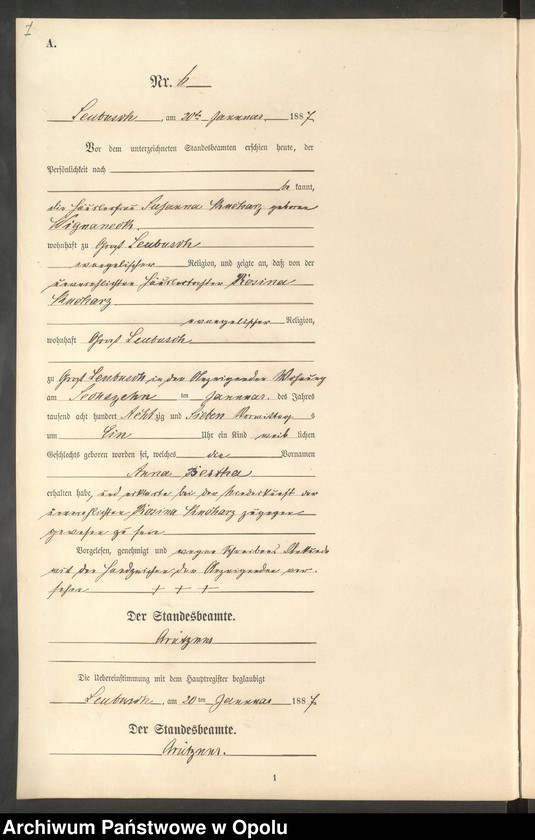 1
A.
Nr. 6
Leubusch, am 20ten Januar 1887.
Vor dem unterzeichneten Standesbeamten erschien heute, der
Persönlichkeit nach
be kannt,
die Häuslerfrau Susanna Kucharz geborene
wohnhaft zu Groß Leubusch
evangelischer Religion, und zeigte an, daß von der
unverehelichten Häuslertochter Rosina
Kucharz
evangelischer Religion,
wohnhaft Groß Leubusch
zu Groß Leubusch in der Anzeigenden Wohnung
am Sechszehn ten Januar des Jahres
tausend acht hundert Acht zig und Sieben Vormittag s
um Ein Uhr ein Kind weib lichen
Geschlechts geboren worden sei, welches die Vornamen
Anna Bertha
erhalten habe, und erklärte bei der Niederkunft der
unverehelichten Rosina Kucharz zugegen
gewesen zu sein
Vorgelesen, genehmigt und wegen Schreibens
mit der Handzeichen der Anzeigenden ver-
sehen + + +
Der Standesbeamte.
Die Uebereinstimmung mit dem Hauptregister beglaubigt
Leubusch, am 20 ten Januar 1887.
Der Standesbeamte.
1
Archiwum Państwowe w Opolu